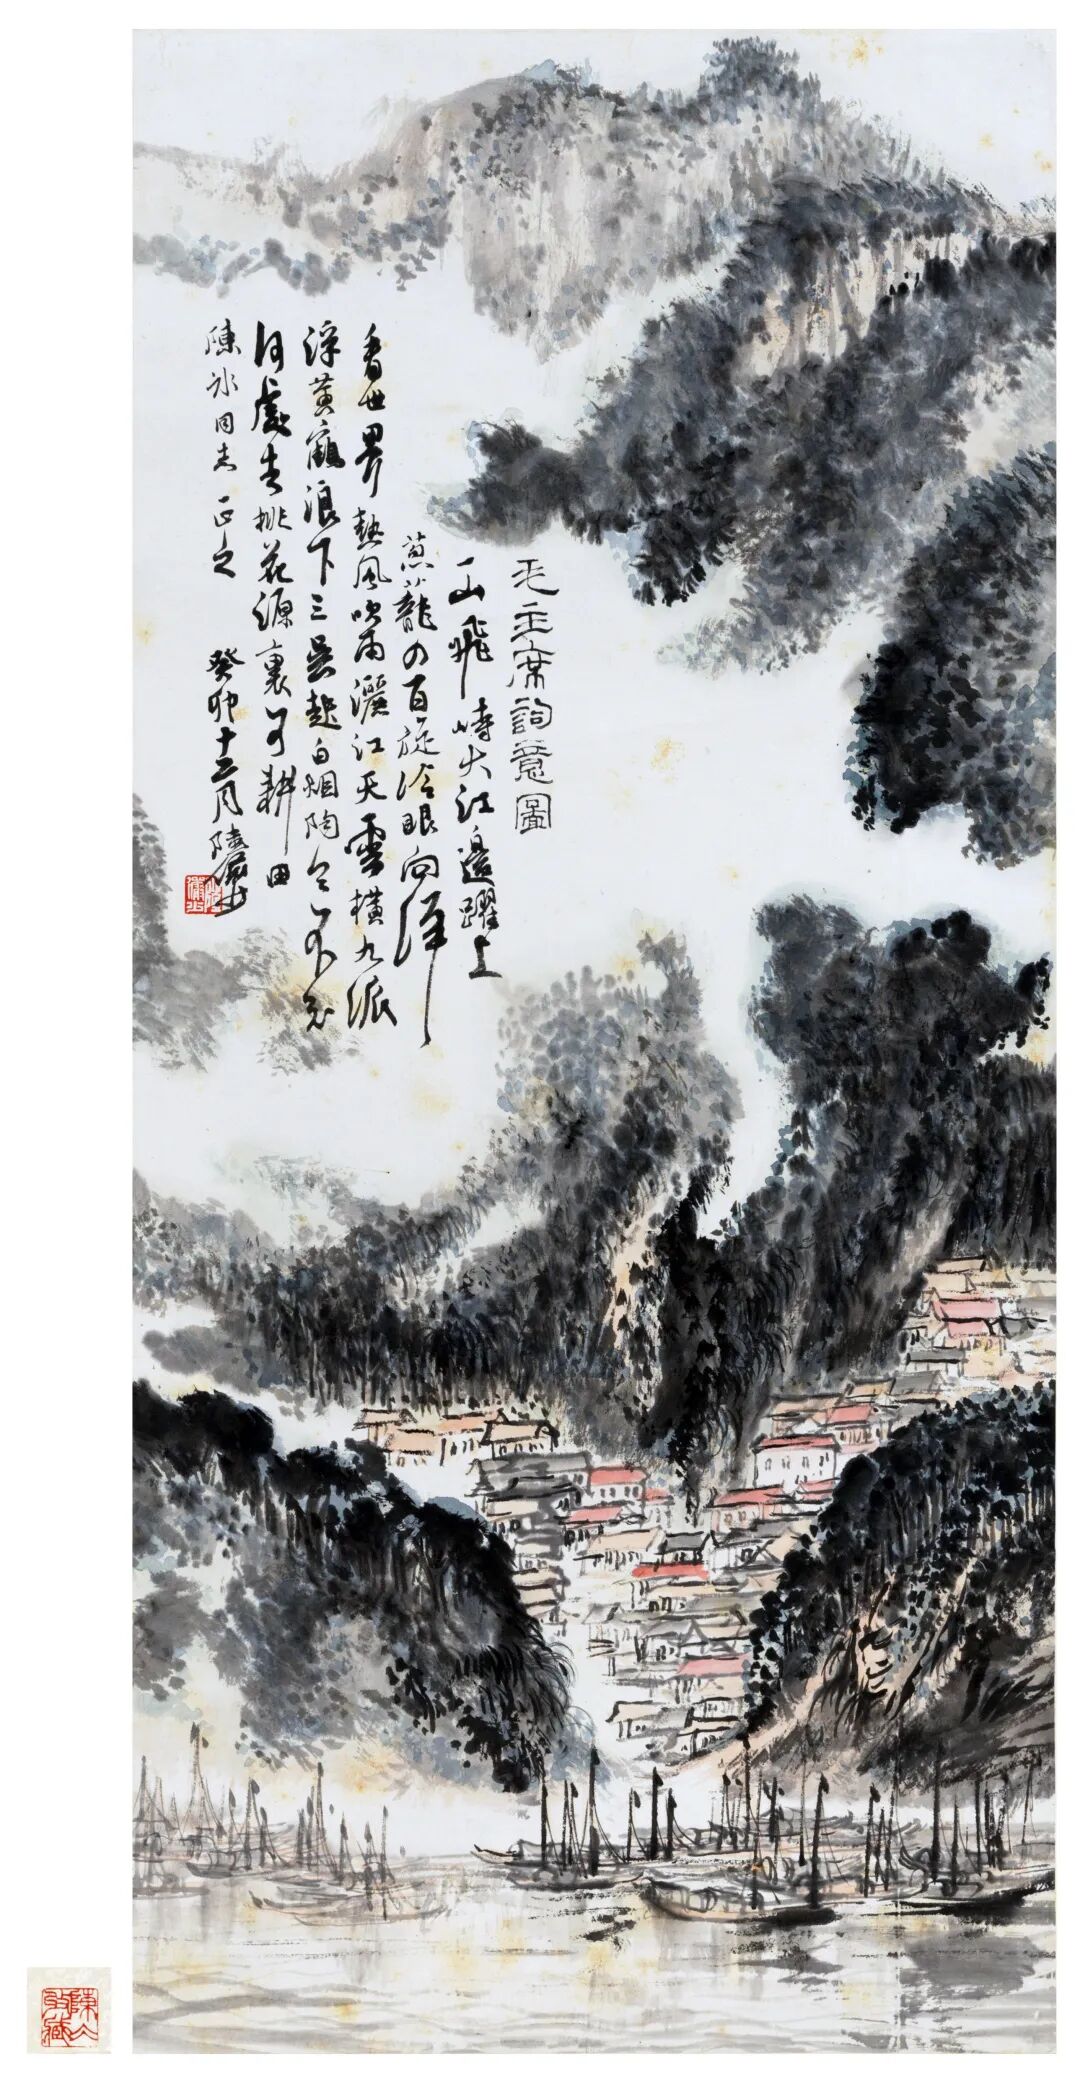 毛主席詞意圖
一山飛峙大江邊躍上
蔥蘢四百旋冷眼向洋
看世界熱風吹雨灑江天雲橫九派
浮黃鶴浪下三吳起白烟陶令不知
何處去桃花源裏可耕田
陳冰同志正之
癸卯十二月陸儼少